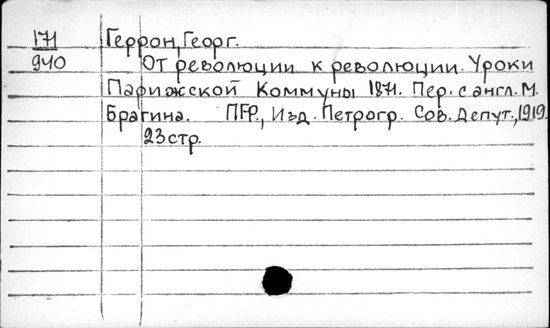 171 Геррон, Георг.
940 От революции к революции. Уроки
Парижской Коммуны 1871. Пер. с англ. М.
Брагина. ПГР., Изд. Петрогр. Сов. Депут., 1919.
23 стр.